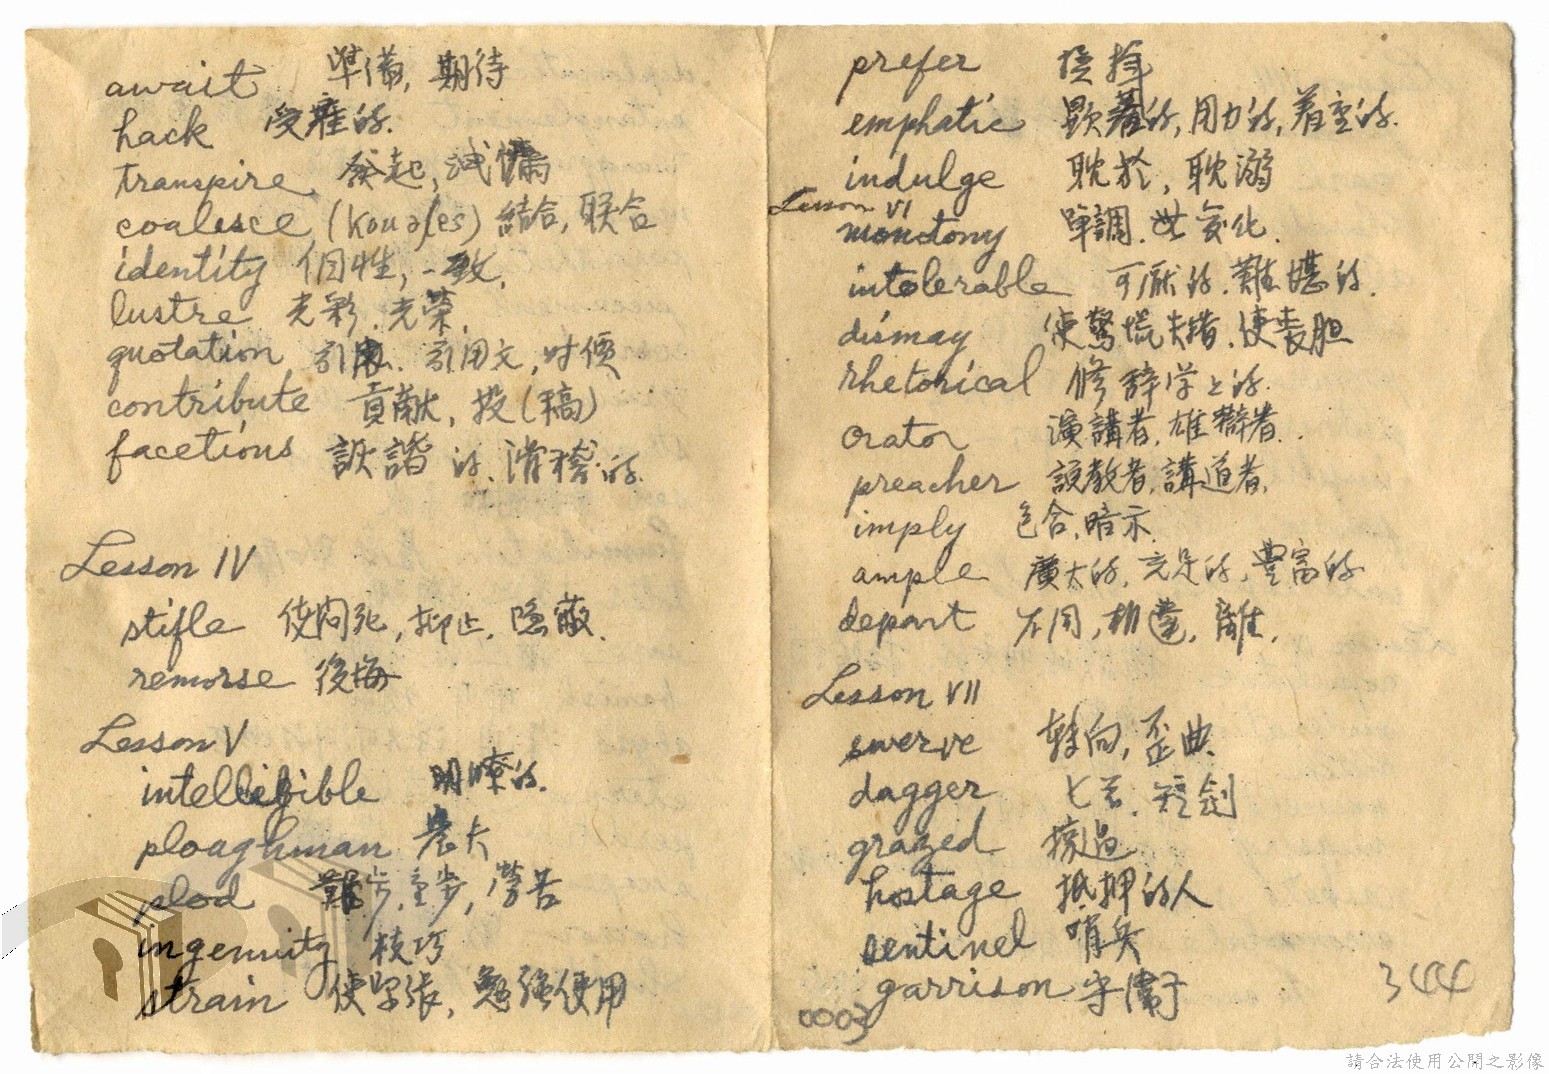 await 準備, 期待
hack 受雇的.
transpire 發起,
coalesce (Kouəles) 結合, 联合
identity 個性, 一致,
lustre 光彩. 光榮,
quotation 引用文, 时價
contribute 貢献, 投(稿)
facetious 詼諧的. 滑稽的.
Lesson IV
stifle 使悶死, 抑止. 隐蔽.
remorse 後悔
Lesson V
intelligible 明瞭的.
ploaghman 農夫
plod 難步. 重步, 勞苦
ingenuity 技巧
strain 使緊張, 勉強使用
prefer 選擇
emphatic 顯著的, 用力的, 着重的.
indulge 耽於, 耽溺
Lesson VI
monotony 單調. 世变化.
intolerable 可厭的. 難堪的.
dismay 使驚慌失措. 使丧胆
rhetorical 修辞学上的.
orator 演講者, 雄辯者.
preacher 説教者, 講道者,
imply 包含, 暗示.
ample 廣大的, 充足的, 豐富的
depart 不同, 離,
Lesson VII
swerve 转向, 歪曲.
dagger 匕首. 短劍
grazed 擦過
hostage 抵押的人
sentinel 哨兵
garrison 守衛
344
0003
請合法使用公開之影像